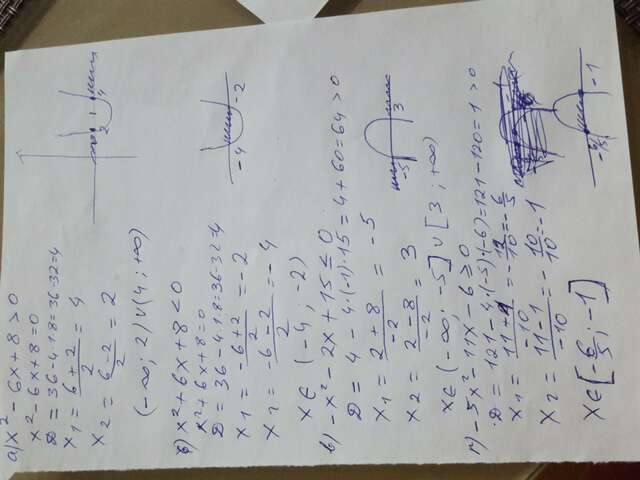 а) x² - 6x + 8 > 0
x² - 6x + 8 = 0
D = 36 - 4·1·8 = 36 - 32 = 4
x₁ = (6 + 2)/2 = 4
x₂ = (6 - 2)/2 = 2
2 4
(-∞; 2) ∪ (4; +∞)
б) x² + 6x + 8 < 0
x² + 6x + 8 = 0
D = 36 - 4·1·8 = 36 - 32 = 4
x₁ = (-6 + 2)/2 = -2
x₂ = (-6 - 2)/2 = -4
-4 -2
x ∈ (-4; -2)
в) -x² - 2x + 15 ≤ 0
D = 4 - 4·(-1)·15 = 4 + 60 = 64 > 0
x₁ = (2 + 8)/-2 = -5
x₂ = (2 - 8)/-2 = 3
-5 3
x ∈ (-∞; -5] ∪ [3; +∞)
г) -5x² - 11x - 6 ≥ 0
D = 121 - 4·(-5)·(-6) = 121 - 120 = 1 > 0
x₁ = (11 + 1)/-10 = -12/10 = -6/5
x₂ = (11 - 1)/-10 = -10/10 = -1
-6/5 -1
x ∈ [-6/5; -1]